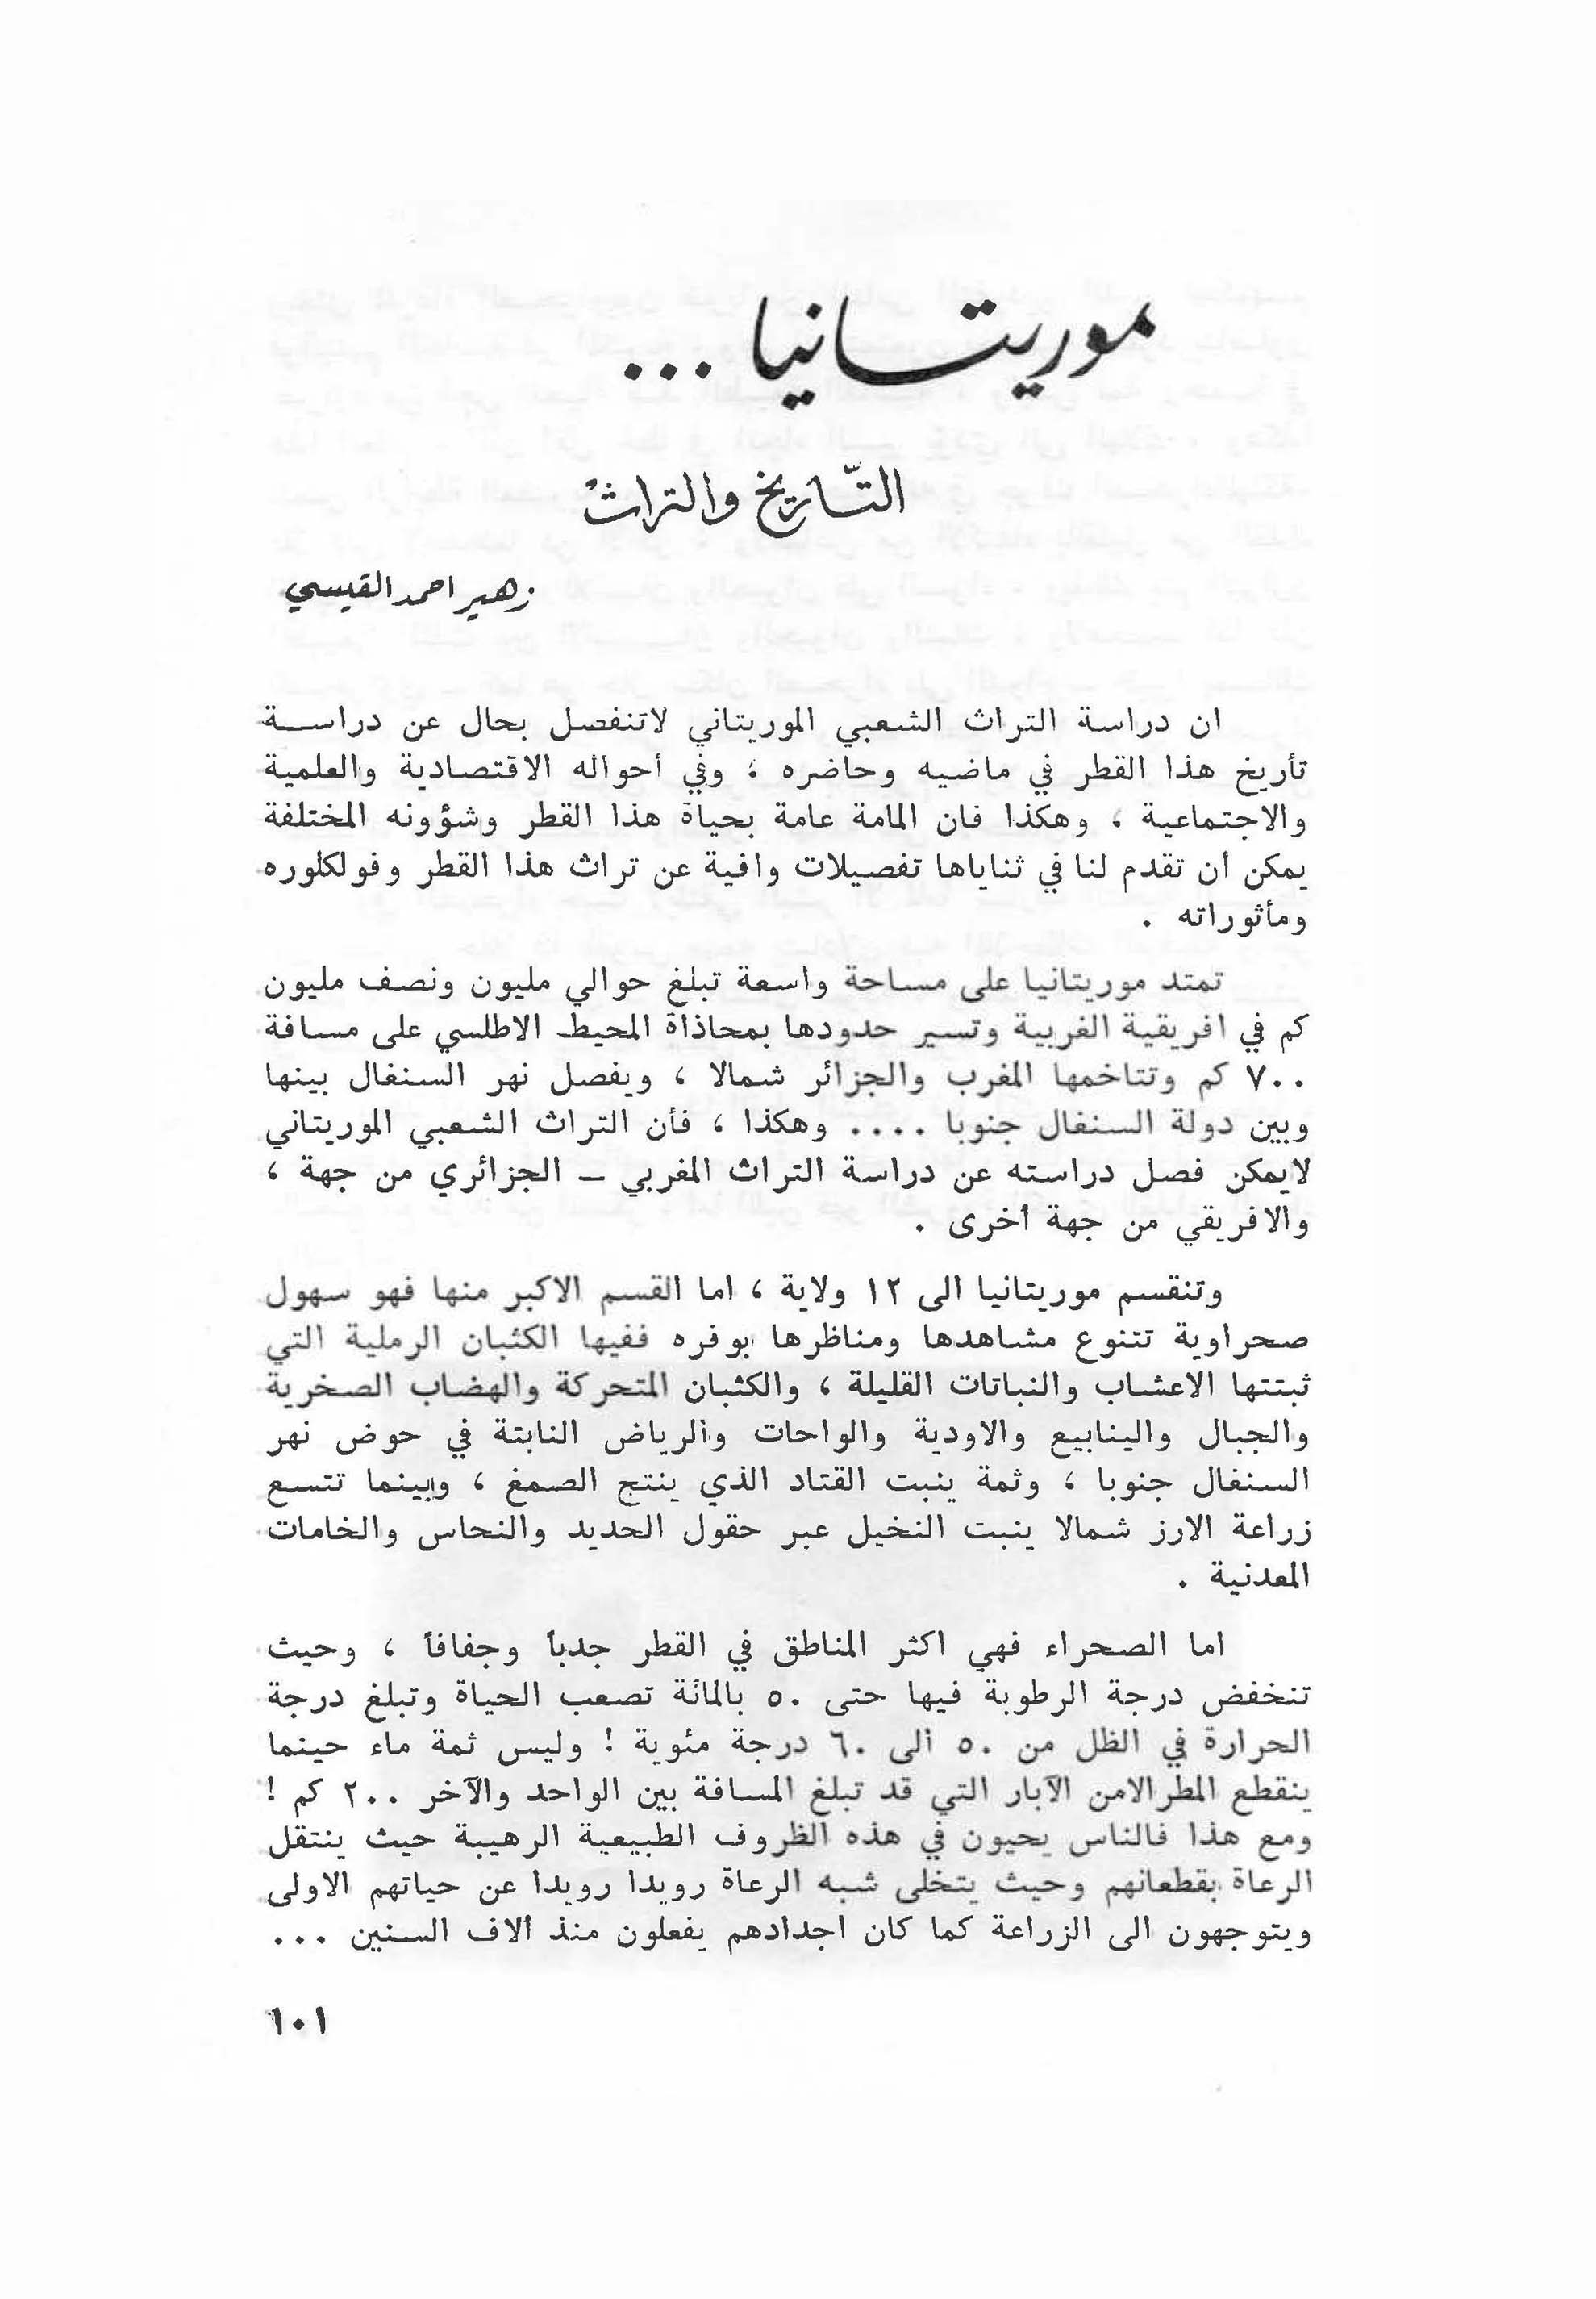 موريتانيا ...
التّاريخ والتراث
زهير احمد القيسي
ان دراسة التراث الشعبي الموريتاني لاتنفصل بحال عن دراســة
تأريخ هذا القطر في ماضيه وحاضره ، وفي أحواله الاقتصادية والعلمية
والاجتماعية ، وهكذا فان المامة عامة بحياة هذا القطر وشؤونه المختلفة
يمكن أن تقدم لنا في ثناياها تفصيلات وافية عن تراث هذا القطر وفولكلوره
ومأثوراته .
تمتد موريتانيا على مساحة واسعة تبلغ حوالي مليون ونصف مليون
كم في افريقية الغربية وتسير حدودها بمحاذاة المحيط الاطلسي على مسافة
٧٠٠ كم وتتاخمها المغرب والجزائر شمالا ، ويفصل نهر السنغال بينها
وبين دولة السنغال جنوبا .... وهكذا ، فأن التراث الشعبي الموريتاني
لايمكن فصل دراسته عن دراسة التراث المغربي – الجزائري من جهة ،
والافريقي من جهة أخرى .
وتنقسم موريتانيا الى ١٢ ولاية ، اما القسم الاكبر منها فهو سهول
صحراوية تتنوع مشاهدها ومناظرها بوفره ففيها الكثبان الرملية التي
ثبتتها الاعشاب والنباتات القليلة ، والكثبان المتحركة والهضاب الصخرية
والجبال والينابيع والاودية والواحات والرياض النابتة في حوض نهر
السنغال جنوبا ، وثمة ينبت القتاد الذي ينتج الصمغ ، وبينما تتسع
زراعة الارز شمالا ينبت النخيل عبر حقول الحديد والنحاس والخامات
المعدنية .
اما الصحراء فهي اكثر المناطق في القطر جدباً وجفافاً ، وحيث
تنخفض درجة الرطوبة فيها حتى ٥٠ بالمائة تصعب الحياة وتبلغ درجة
الحرارة في الظل من ٥٠ الى ٦٠ درجة مئوية ! وليس ثمة ماء حينما
ينقطع المطر الامن الآبار التي قد تبلغ المسافة بين الواحد والآخر ٢٠٠ كم !
ومع هذا فالناس يحيون في هذه الظروف الطبيعية الرهيبة حيث ينتقل
الرعاة بقطعانهم وحيث يتخلى شبه الرعاة رويدا رويدا عن حياتهم الاولى
ويتوجهون الى الزراعة كما كان اجدادهم يفعلون منذ آلاف السنين ...
١٠١